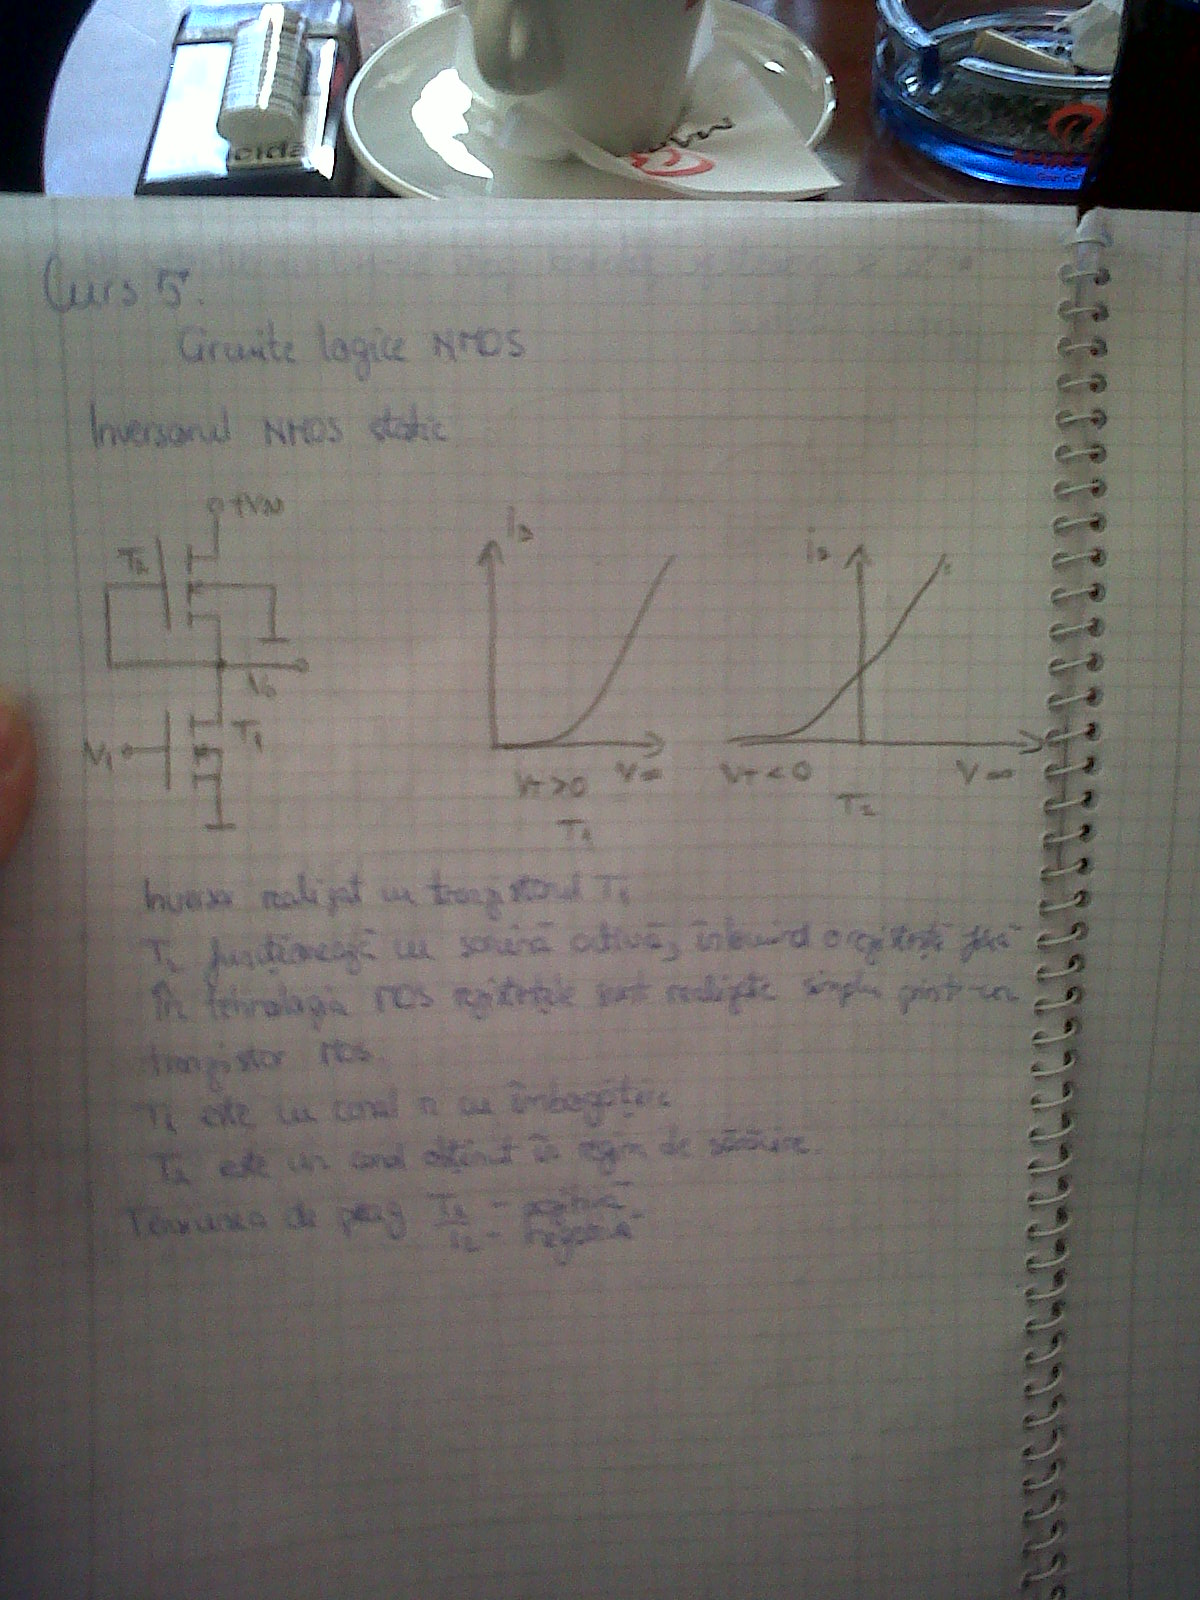 Curs 5.
Circuite logice NMOS
Inversorul NMOS static
+VDD
T2
iD
iD
V0
V1
T1
VT>0
VT<0
T1
T2
Inversor realizat cu tranzistorul T1
T2 funcționează cu sarcină activă, înlocuind o rezistență fixă
În tehnologia MOS rezistențele sunt realizate simplu printr-un
tranzistor MOS.
T1 este cu canal n cu îmbogățire
T2 este un canal obținut în regim de sărăcire.
Tensiunea de prag T1 - pozitivă
T2 - negativă